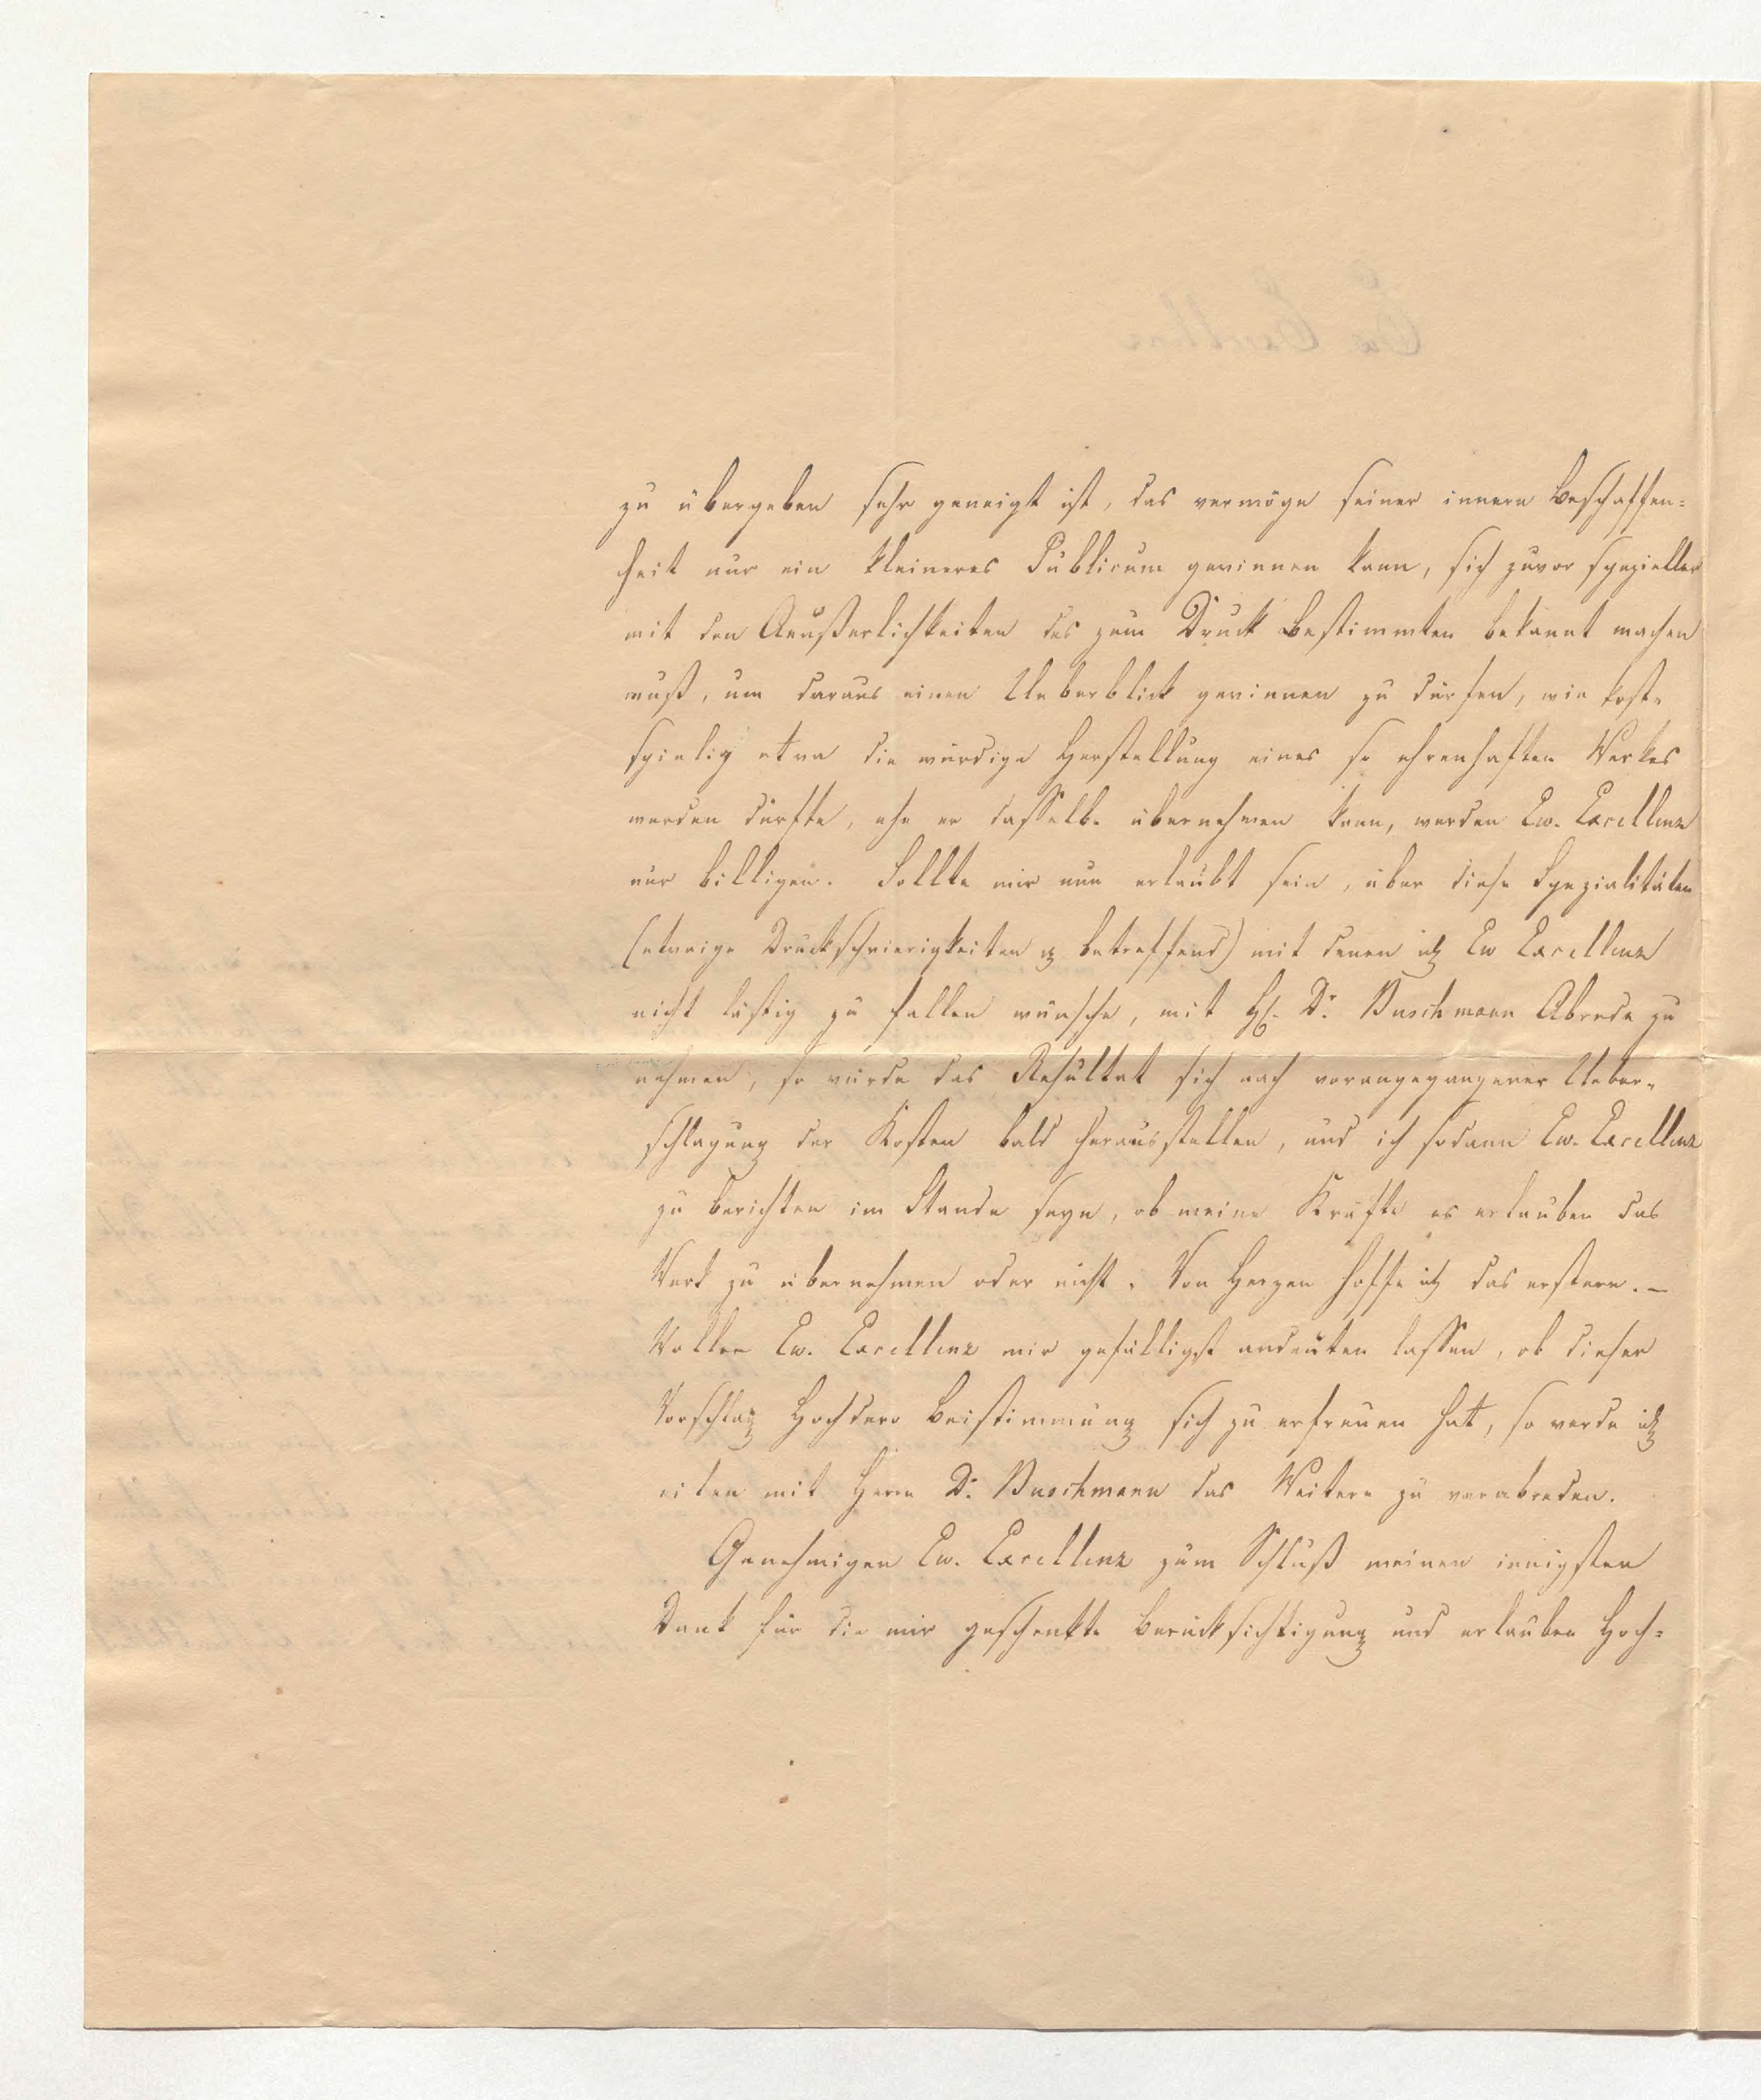 zu übergeben sehr geneigt ist, das vermöge seiner innern Beschaffen-
heit nur ein kleineres Publicum gewinnen kann, sich zuvor spezieller
mit den Aeußerlichkeiten des zum Druck Bestimmten bekannt machen
muß, um daraus einen Ueberblick gewinnen zu dürfen, wie kost-
spielig etwa die würdige Herstellung eines so ehrenhaften Werkes
werden dürfte, ehe er dasselbe übernehmen kann, werden Ew. Excellenz
nur billigen. Sollte mir nun erlaubt sein, über diese Spezialitäten
(etwaige Druckschwierigkeiten pp betreffend) mit denen ich Ew Excellenz
nicht lästig zu fallen wünsche, mit H. Dr. Buschmann Abrede zu
nehmen, so würde das Resultat sich nach vorangegangener Ueber-
schlagung der Kosten bald herausstellen, und ich sodann Ew. Excellenz
zu berichten im Stande seyn, ob meine Kräfte es erlauben das
Werk zu übernehmen oder nicht. Von Herzen hoffe ich das erstere. –
Wollen Ew. Excellenz mir gefälligst andeuten lassen, ob dieser
Vorschlag Hochdero Beistimmung sich zu erfreuen hat, so werde ich
eilen mit Herrn Dr. Buschmann das Weitere zu verabreden.
Genehmigen Ew. Excellenz zum Schluß meinen innigsten
Dank für die mir geschenkte Berücksichtigung und erlauben Hoch-